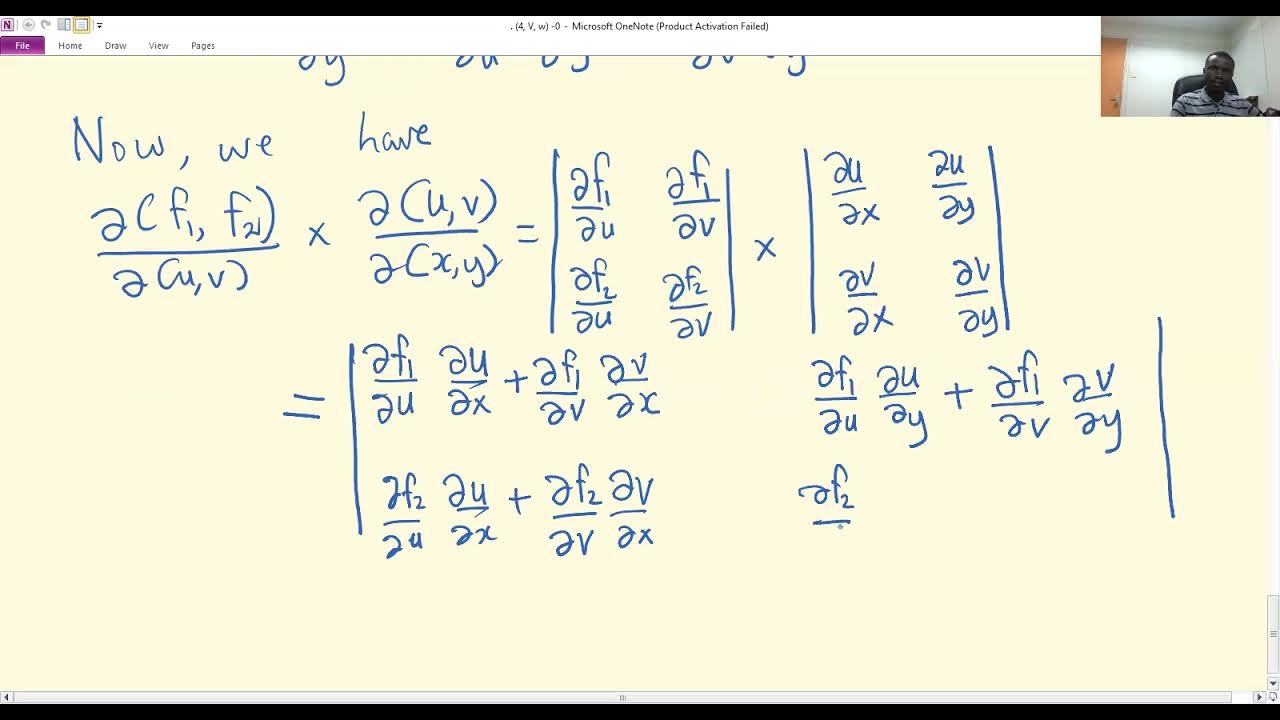 . (4, V, w) -0 - Microsoft OneNote (Product Activation Failed)
File Home Draw View Pages
Now, we have
∂(f₁, f₂) / ∂(u,v) × ∂(u,v) / ∂(x,y) = | ∂f₁/∂u ∂f₁/∂v ; ∂f₂/∂u ∂f₂/∂v | × | ∂u/∂x ∂u/∂y ; ∂v/∂x ∂v/∂y |
= | ∂f₁/∂u ∂u/∂x + ∂f₁/∂v ∂v/∂x ∂f₁/∂u ∂u/∂y + ∂f₁/∂v ∂v/∂y |
∂f₂/∂u ∂u/∂x + ∂f₂/∂v ∂v/∂x ∂f₂